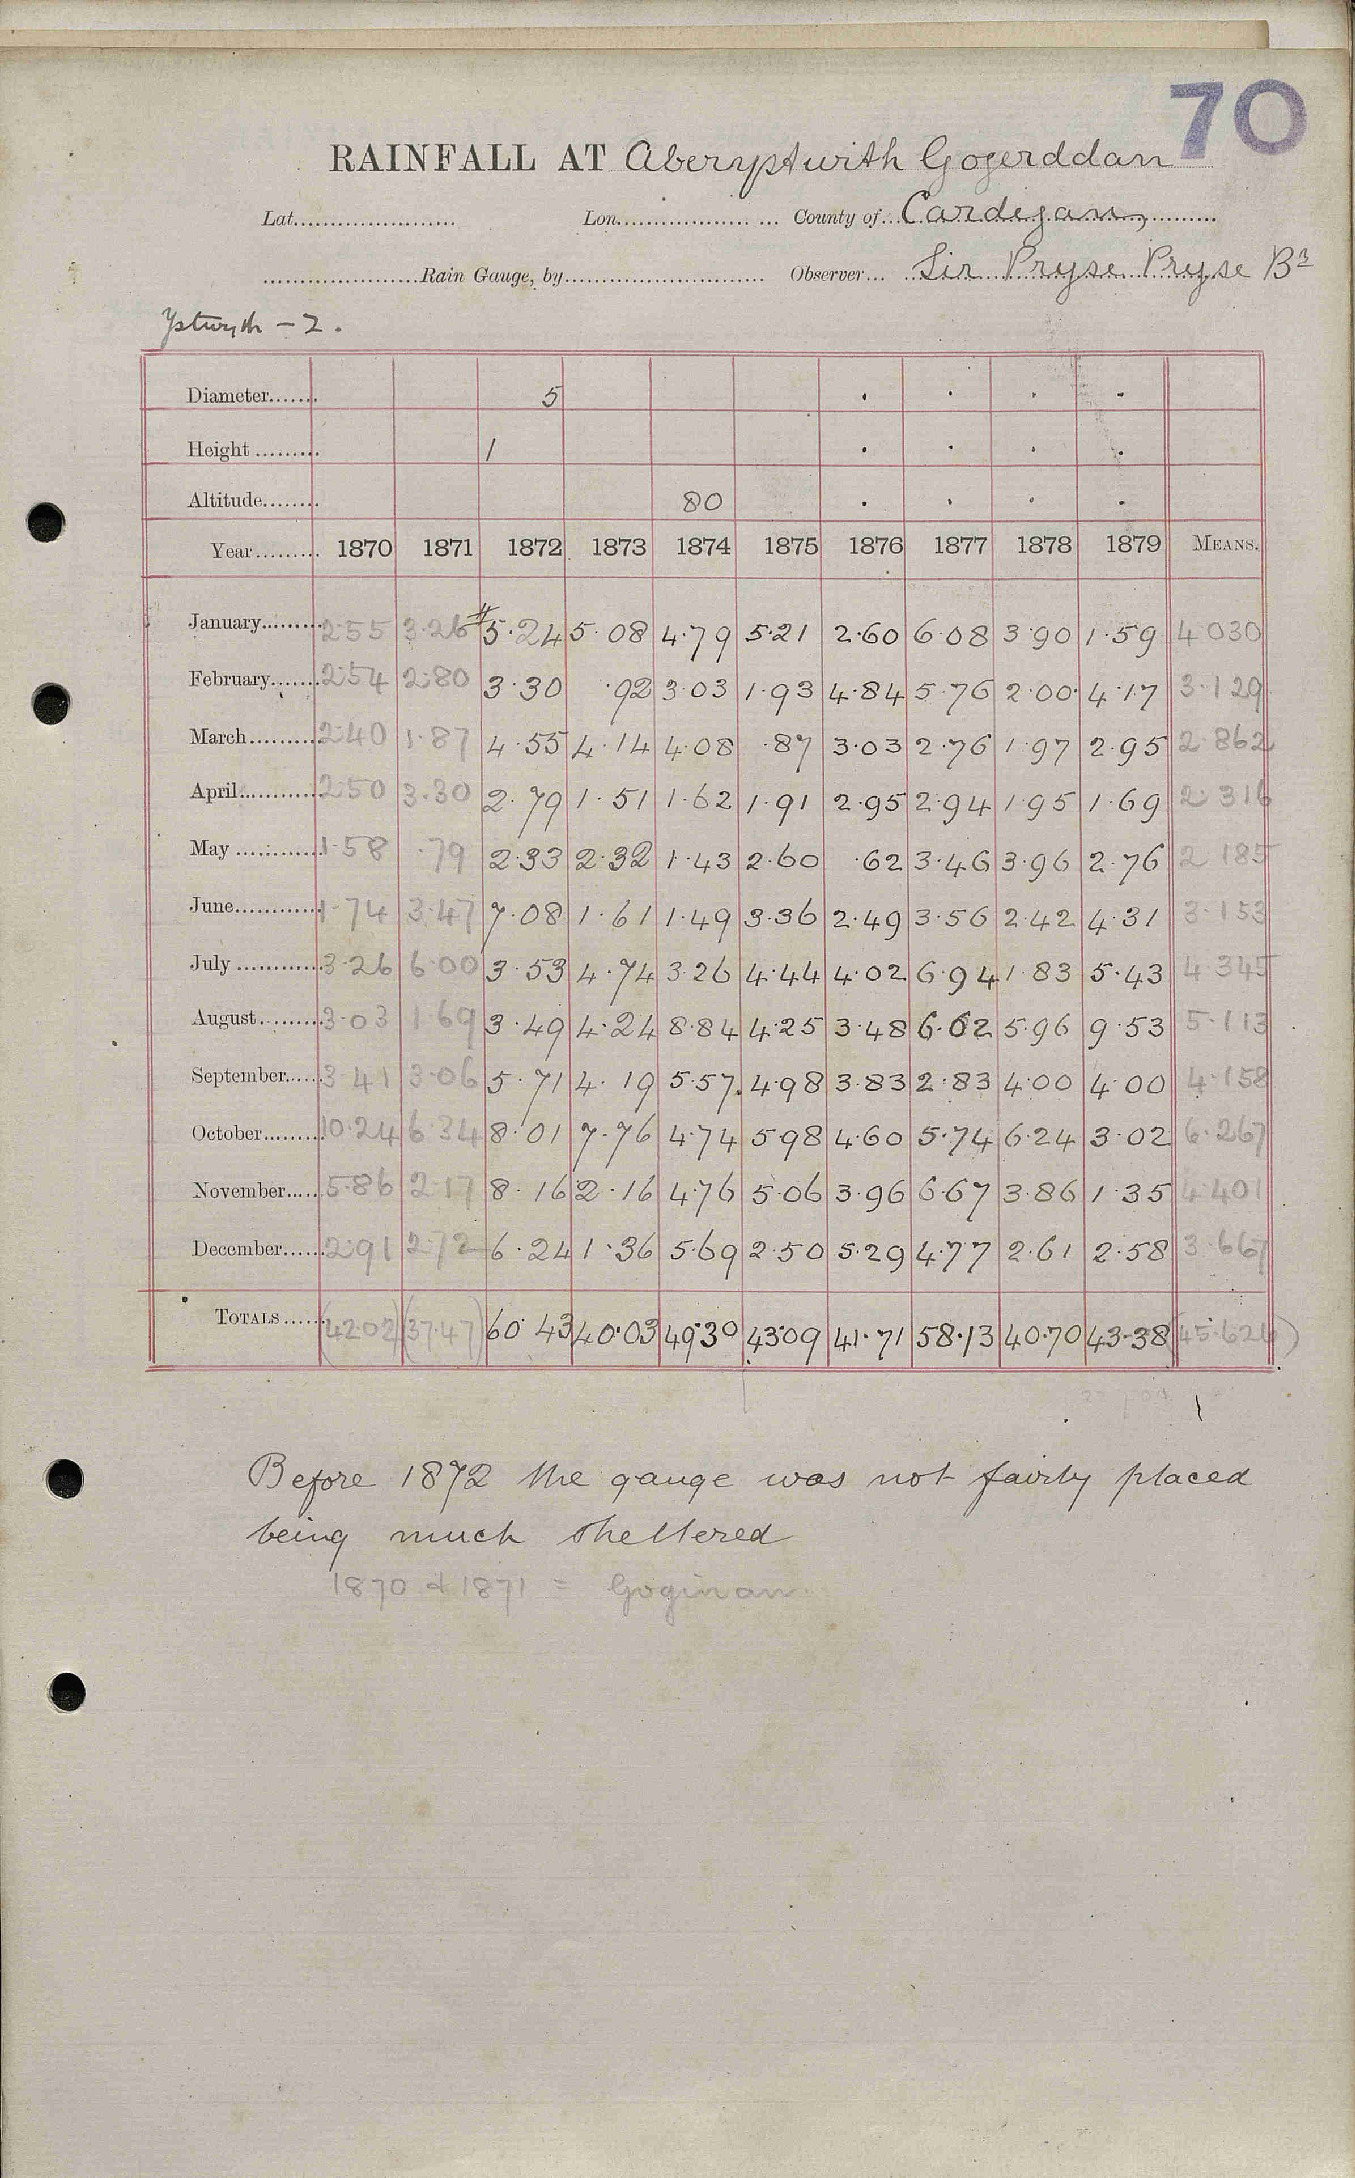 70
RAINFALL AT Aberystwith Gogerddan
Lat. Lon. County of Cardigan,
Rain Gauge, by Observer Sir Pryse Pryse Bt
Ystwyth - 2.
Diameter 5 . . . .
Height 1 . . . .
Altitude 80 . . . .
Year 1870 1871 1872 1873 1874 1875 1876 1877 1878 1879 MEANS.
January 2.55 3.26 #5.24 5.08 4.79 5.21 2.60 6.08 3.90 1.59 4.030
February 2.54 2.80 3.30 .92 3.03 1.93 4.84 5.76 2.00 4.17 3.129
March 2.40 1.87 4.55 4.14 4.08 .87 3.03 2.76 1.97 2.95 2.862
April 2.50 3.30 2.79 1.51 1.62 1.91 2.95 2.94 1.95 1.69 2.316
May 1.58 .79 2.33 2.32 1.43 2.60 .62 3.46 3.96 2.76 2.185
June 1.74 3.47 7.08 1.61 1.49 3.36 2.49 3.56 2.42 4.31 3.153
July 3.26 6.00 3.53 4.74 3.26 4.44 4.02 6.94 1.83 5.43 4.345
August 3.03 1.69 3.49 4.24 8.84 4.25 3.48 6.62 5.96 9.53 5.113
September 3.41 3.06 5.71 4.19 5.57 4.98 3.83 2.83 4.00 4.00 4.158
October 10.24 6.34 8.01 7.76 4.74 5.98 4.60 5.74 6.24 3.02 6.267
November 5.86 2.17 8.16 2.16 4.76 5.06 3.96 6.67 3.86 1.35 4.401
December 2.91 2.72 6.24 1.36 5.69 2.50 5.29 4.77 2.61 2.58 3.667
TOTALS (42.02) (37.47) 60.43 40.03 49.30 43.09 41.71 58.13 40.70 43.38 (45.626)
Before 1872 the gauge was not fairly placed
being much sheltered
1870 & 1871 = Goginan